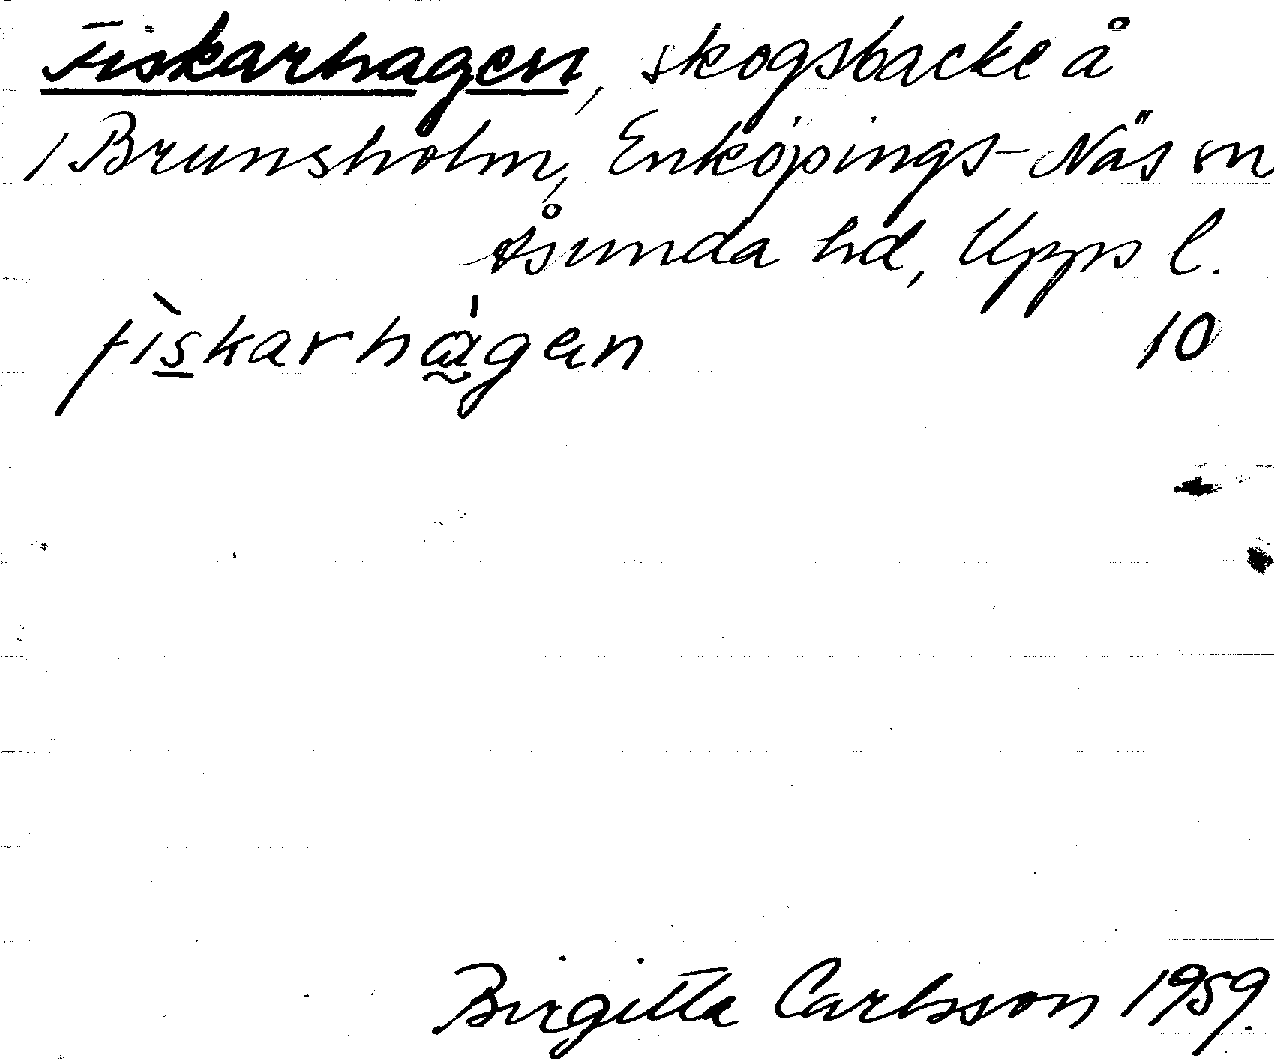 Fiskarhagen, skogsbacke å
/Brunsholm, Enköpings-Näs sn
Åsunda hd, Upps l.
fìskarhágen 10
Birgitta Carlsson 1959.